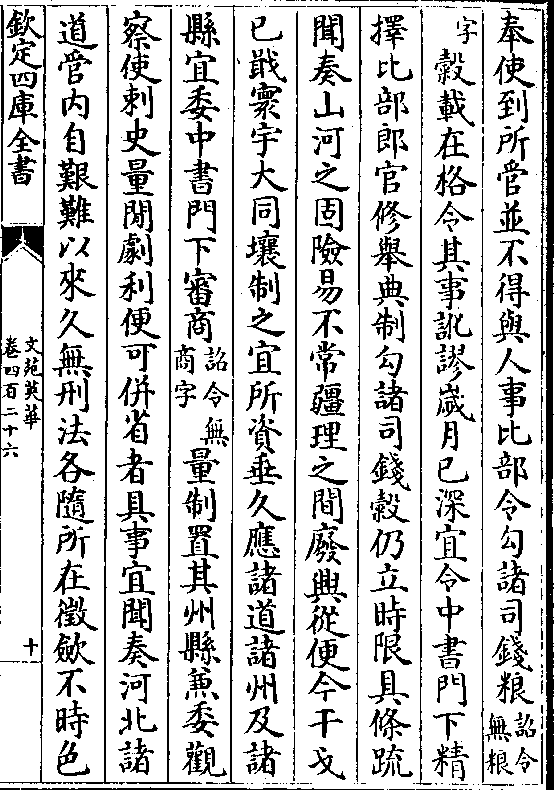 奉使到所管並不得與人事比部令勾諸司錢粮詔令無粮
字榖載在格令其事訛謬歲月已深宜令中書門下精
擇比部郎官修舉典制勾諸司錢榖仍立時限具條疏
聞奏山河之固險易不常疆理之間廢興從便今干戈
已戢寰宇大同壤制之宜所資垂久應諸道諸州及諸
縣宜委中書門下審商詔令無商字量制置其州縣兼委觀
察使刺史量閒劇利便可併省者具事宜聞奏河北諸
道管内自艱難以來久無刑法各隨所在徵歛不時色
欽定四庫全書
文苑英華
卷四百二十六
十